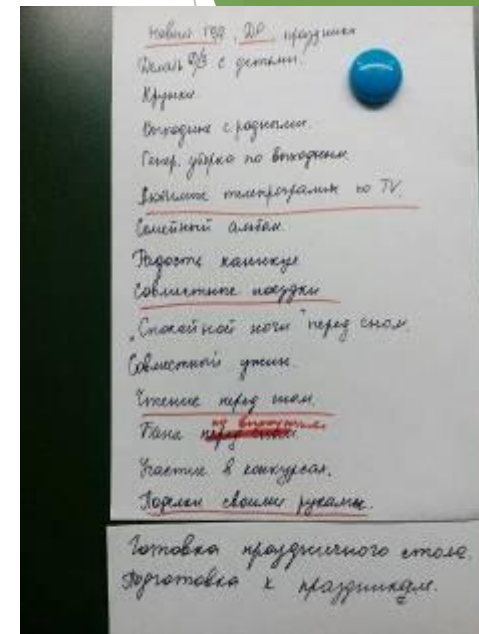 Новый год, ДР, праздники
Делать д/з с детьми.
Кружки.
Выходные с родными.
Генер. уборка по выходным
Любимые телепрограммы по TV.
Семейный альбом.
Радость каникул
Совместные поездки
„Спокойной ночи" перед сном.
Совместный ужин.
Чтение перед сном.
по выходным
Папа перед сном.
Участие в конкурсах.
Поделки своими руками.
Готовка праздничного стола.
Подготовка к праздникам.